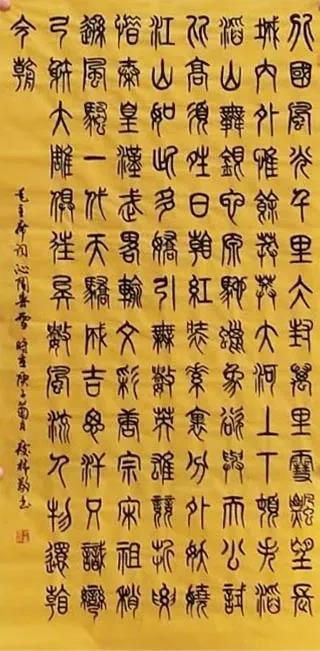 北國風光千里冰封萬里雪飄望長
城內外惟餘莽莽大河上下頓失滔
滔山舞銀蛇原馳蠟象欲與天公試
比高須晴日看紅裝素裹分外妖嬈
江山如此多嬌引無數英雄競折腰
惜秦皇漢武略輸文彩唐宗宋祖稍
遜風騷一代天驕成吉思汗只識彎
弓射大雕俱往矣數風流人物還看
今朝
毛主席詞沁園春雪時在庚子菊月